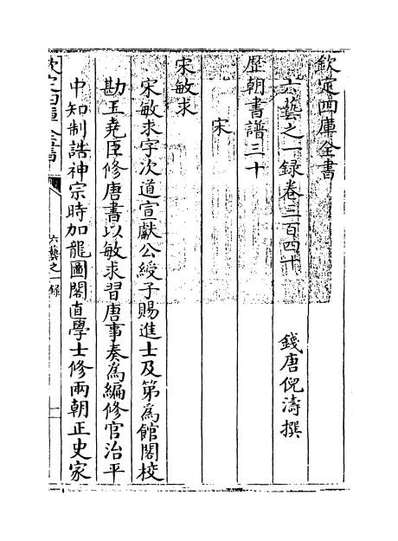 欽定四庫全書
六藝之一錄卷三百四十
錢唐倪濤撰
歷朝書譜三十
宋
宋敏求
宋敏求字次道宣獻公綬子賜進士及第為館閣校
勘王堯臣修唐書以敏求習唐事奏為編修官治平
中知制誥神宗時加龍圖閣直學士修兩朝正史家
欽定四庫全書
六藝之一錄
一